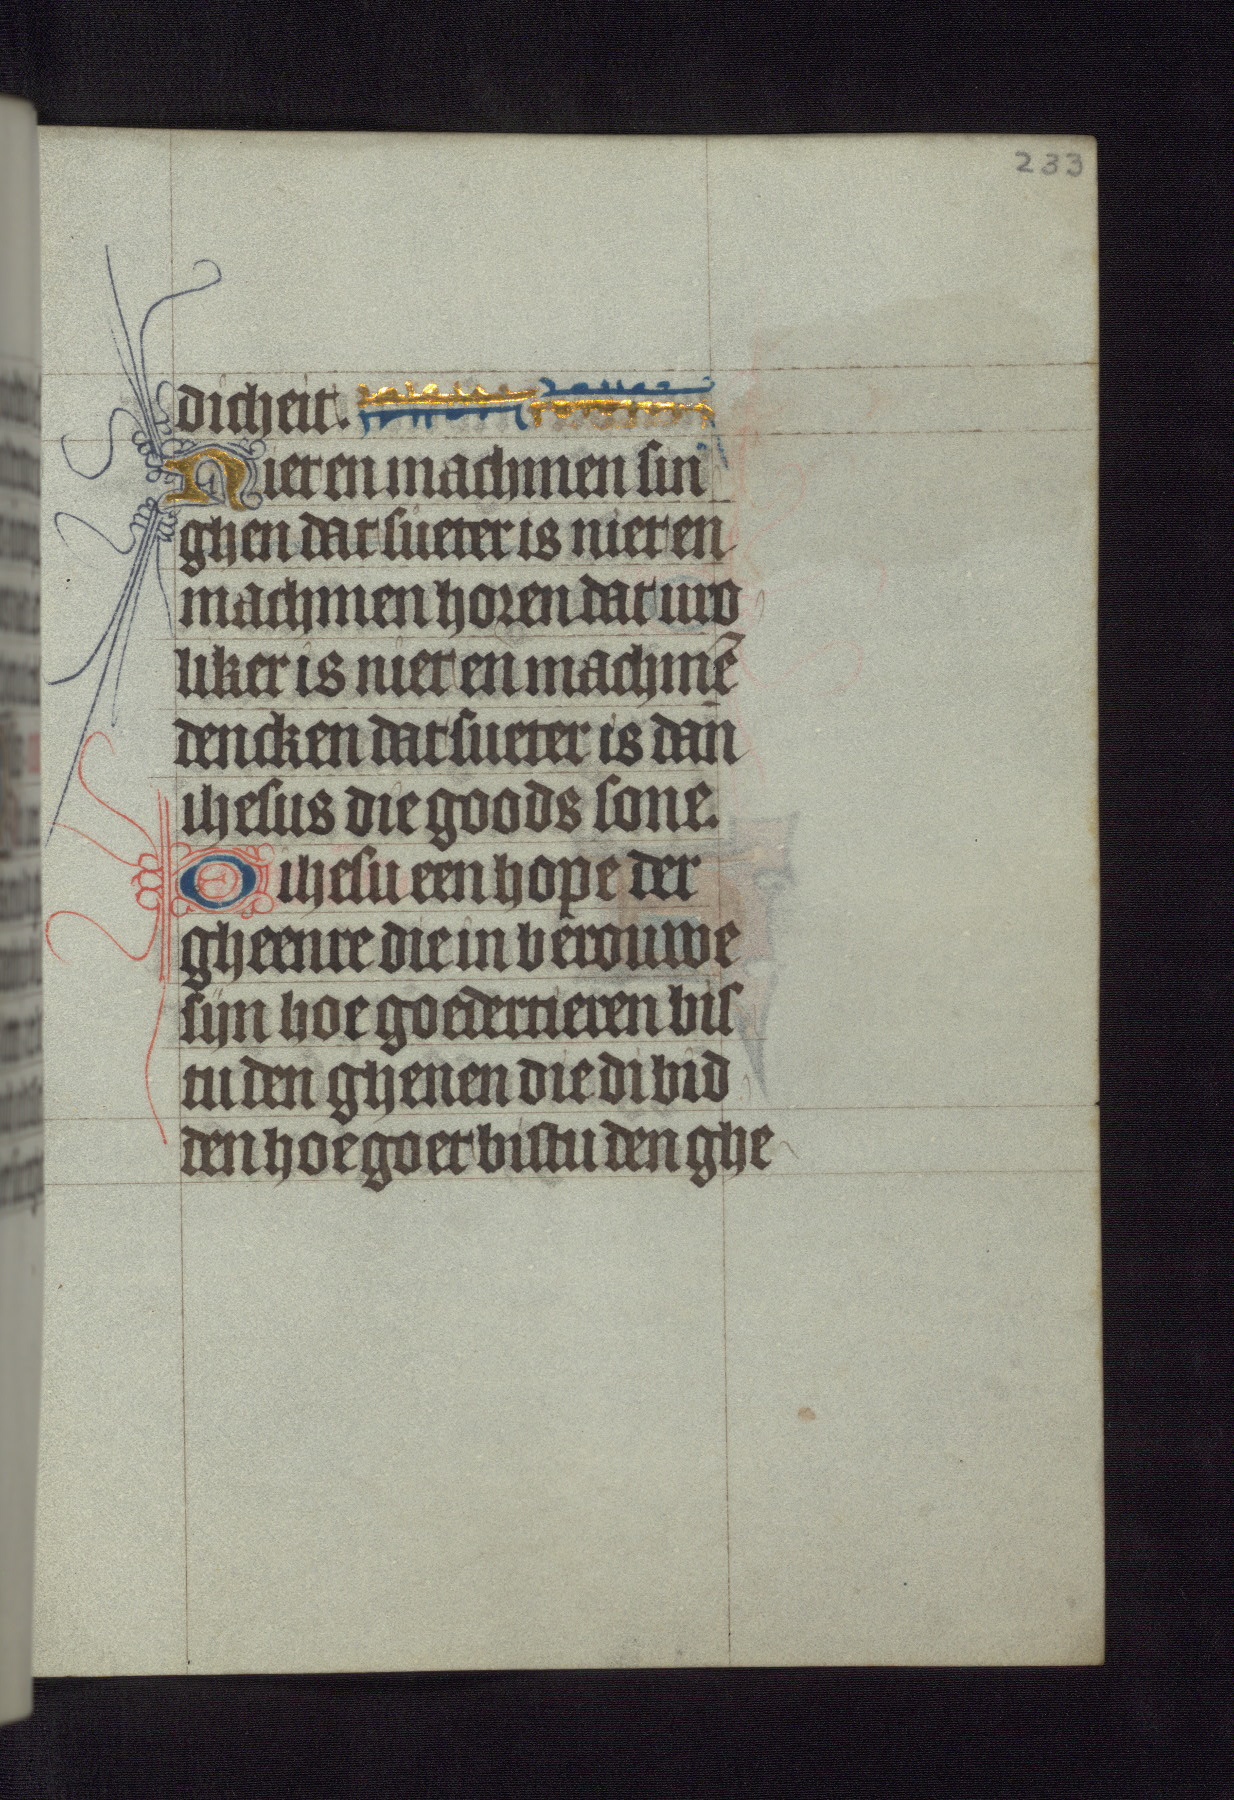 233
dicheit.
Niet en machmen sin
ghen dat sueter is niet en
machmen horen dat uro
liker is niet en machmē
dencken dat sueter is dan
ihesus die goods sone.
O ihesu een hope der
gheenre die in berouwe
sijn hoe goedertieren bis
tu den ghenen die di bid
den hoe goet bistu den ghe